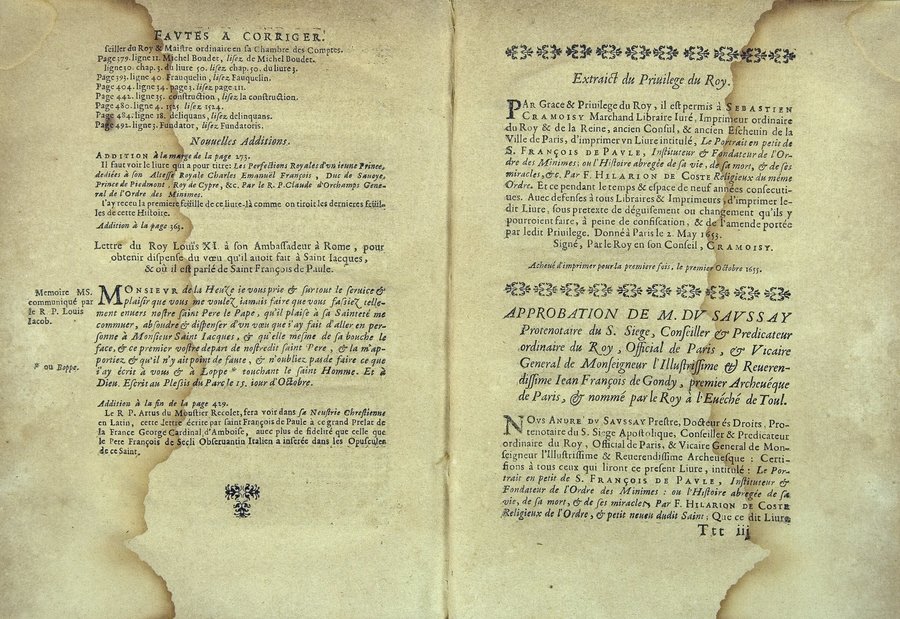 FAVTES A CORRIGER.
seiller du Roy & Maistre ordinaire en sa Chambre des Comptes.
Page 379. ligne 11. Michel Boudet, lisez de Michel Boudet.
ligne 30. chap. 3. du liure 50. lisez chap. 50. du liure 3.
Page 393. ligne 40. Frauquelin, lisez Fauquelin.
Page 404. ligne 34. page 3. lisez page 211.
Page 442. ligne 35. construction, lisez la construction.
Page 480. ligne 4. 1525 lisez 1524.
Page 484. ligne 18. deliquans, lisez delinquans.
Page 492. ligne 3. Fundator, lisez Fundatoris.
Nouuelles Additions.
ADDITION à la marge de la page 273.
Il faut voir le liure qui a pour titre: Les Perfections Royales d'vn ieune Prince,
dediées à son Altesse Royale Charles Emanuël François, Duc de Sauoye,
Prince de Piedmont, Roy de Cypre, &c. Par le R. P. Claude d'Orchamps Gene-
ral de l'Ordre des Minimes.
I'ay receu la premiere feüille de ce liure-là comme on tiroit les dernieres feüil-
les de cette Histoire.
Addition à la page 363.
Lettre du Roy Louïs XI. à son Ambassadeur à Rome, pour
obtenir dispense du vœu qu'il auoit fait à Saint Iacques,
& où il est parlé de Saint François de Paule.
Memoire MS.
communiqué par
le R P. Louis
Iacob.
MONSIEVR de la Heuze ie vous prie & surtout le seruice &
plaisir que vous me voulez iamais faire que vous fassiez telle-
ment enuers nostre saint Pere le Pape, qu'il plaise à sa Sainteté me
commuer, absoudre & dispenser d'vn vœu que i'ay fait d'aller en per-
sonne à Monsieur Saint Iacques, & qu'elle mesme de sa bouche le
face, & ce premier vostre depart de nostredit saint Pere, & la m'ap-
portiez & qu'il n'y ait point de faute, & n'oubliez pas de faire ce que
i'ay écrit à vous & à Loppe * touchant le saint Homme. Et à
Dieu. Escrit au Plessis du Parc le 15. iour d'Octobre.
* ou Boppe.
Addition à la fin de la page 429.
Le R. P. Artus du Moustier Recolet, fera voir dans sa Neustrie Chrestienne
en Latin, cette lettre écrite par saint François de Paule à ce grand Prelat de
la France George Cardinal d'Amboise, auec plus de fidelité que celle que
le Pere François de Secli Obseruantin Italien a inserée dans les Opuscules
de ce Saint.
Extraict du Priuilege du Roy.
PAR Grace & Priuilege du Roy, il est permis à SEBASTIEN
CRAMOISY Marchand Libraire Iuré, Imprimeur ordinaire
du Roy & de la Reine, ancien Consul, & ancien Escheuin de la
Ville de Paris, d'imprimer vn Liure intitulé, Le Portrait en petit de
S. FRANÇOIS DE PAVLE, Instituteur & Fondateur de l'Or-
dre des Minimes: ou l'Histoire abregée de sa vie, de sa mort, & de ses
miracles, &c. Par F. HILARION DE COSTE Religieux du même
Ordre. Et ce pendant le temps & espace de neuf années consecuti-
ues. Auec defenses à tous Libraires & Imprimeurs, d'imprimer le-
dit Liure, sous pretexte de déguisement ou changement qu'ils y
pourroient faire, à peine de confiscation, & de l'amende portée
par ledit Priuilege. Donné à Paris le 2. May 1653.
Signé, Par le Roy en son Conseil, CRAMOISY.
Acheué d'imprimer pour la premiere fois, le premier Octobre 1655.
APPROBATION DE M. DV SAVSSAY
Protenotaire du S. Siege, Conseiller & Predicateur
ordinaire du Roy, Official de Paris, & Vicaire
General de Monseigneur l'Illustrissime & Reueren-
dissime Iean François de Gondy, premier Archeuéque
de Paris, & nommé par le Roy à l'Euéché de Toul.
NOVS ANDRE' DV SAVSSAY Prestre, Docteur és Droits, Pro-
tenotaire du S. Siege Apostolique, Conseiller & Predicateur
ordinaire du Roy, Official de Paris, & Vicaire General de Mon-
seigneur l'Illustrissime & Reuerendissime Archeuesque: Certi-
fions à tous ceux qui liront ce present Liure, intitulé: Le Por-
trait en petit de S. FRANÇOIS DE PAVLE, Instituteur &
Fondateur de l'Ordre des Minimes: ou l'Histoire abregée de sa
vie, de sa mort, & de ses miracles, Par F. HILARION DE COSTE
Religieux de l'Ordre, & petit neueu dudit Saint: Que ce dit Liure
Ttt iij